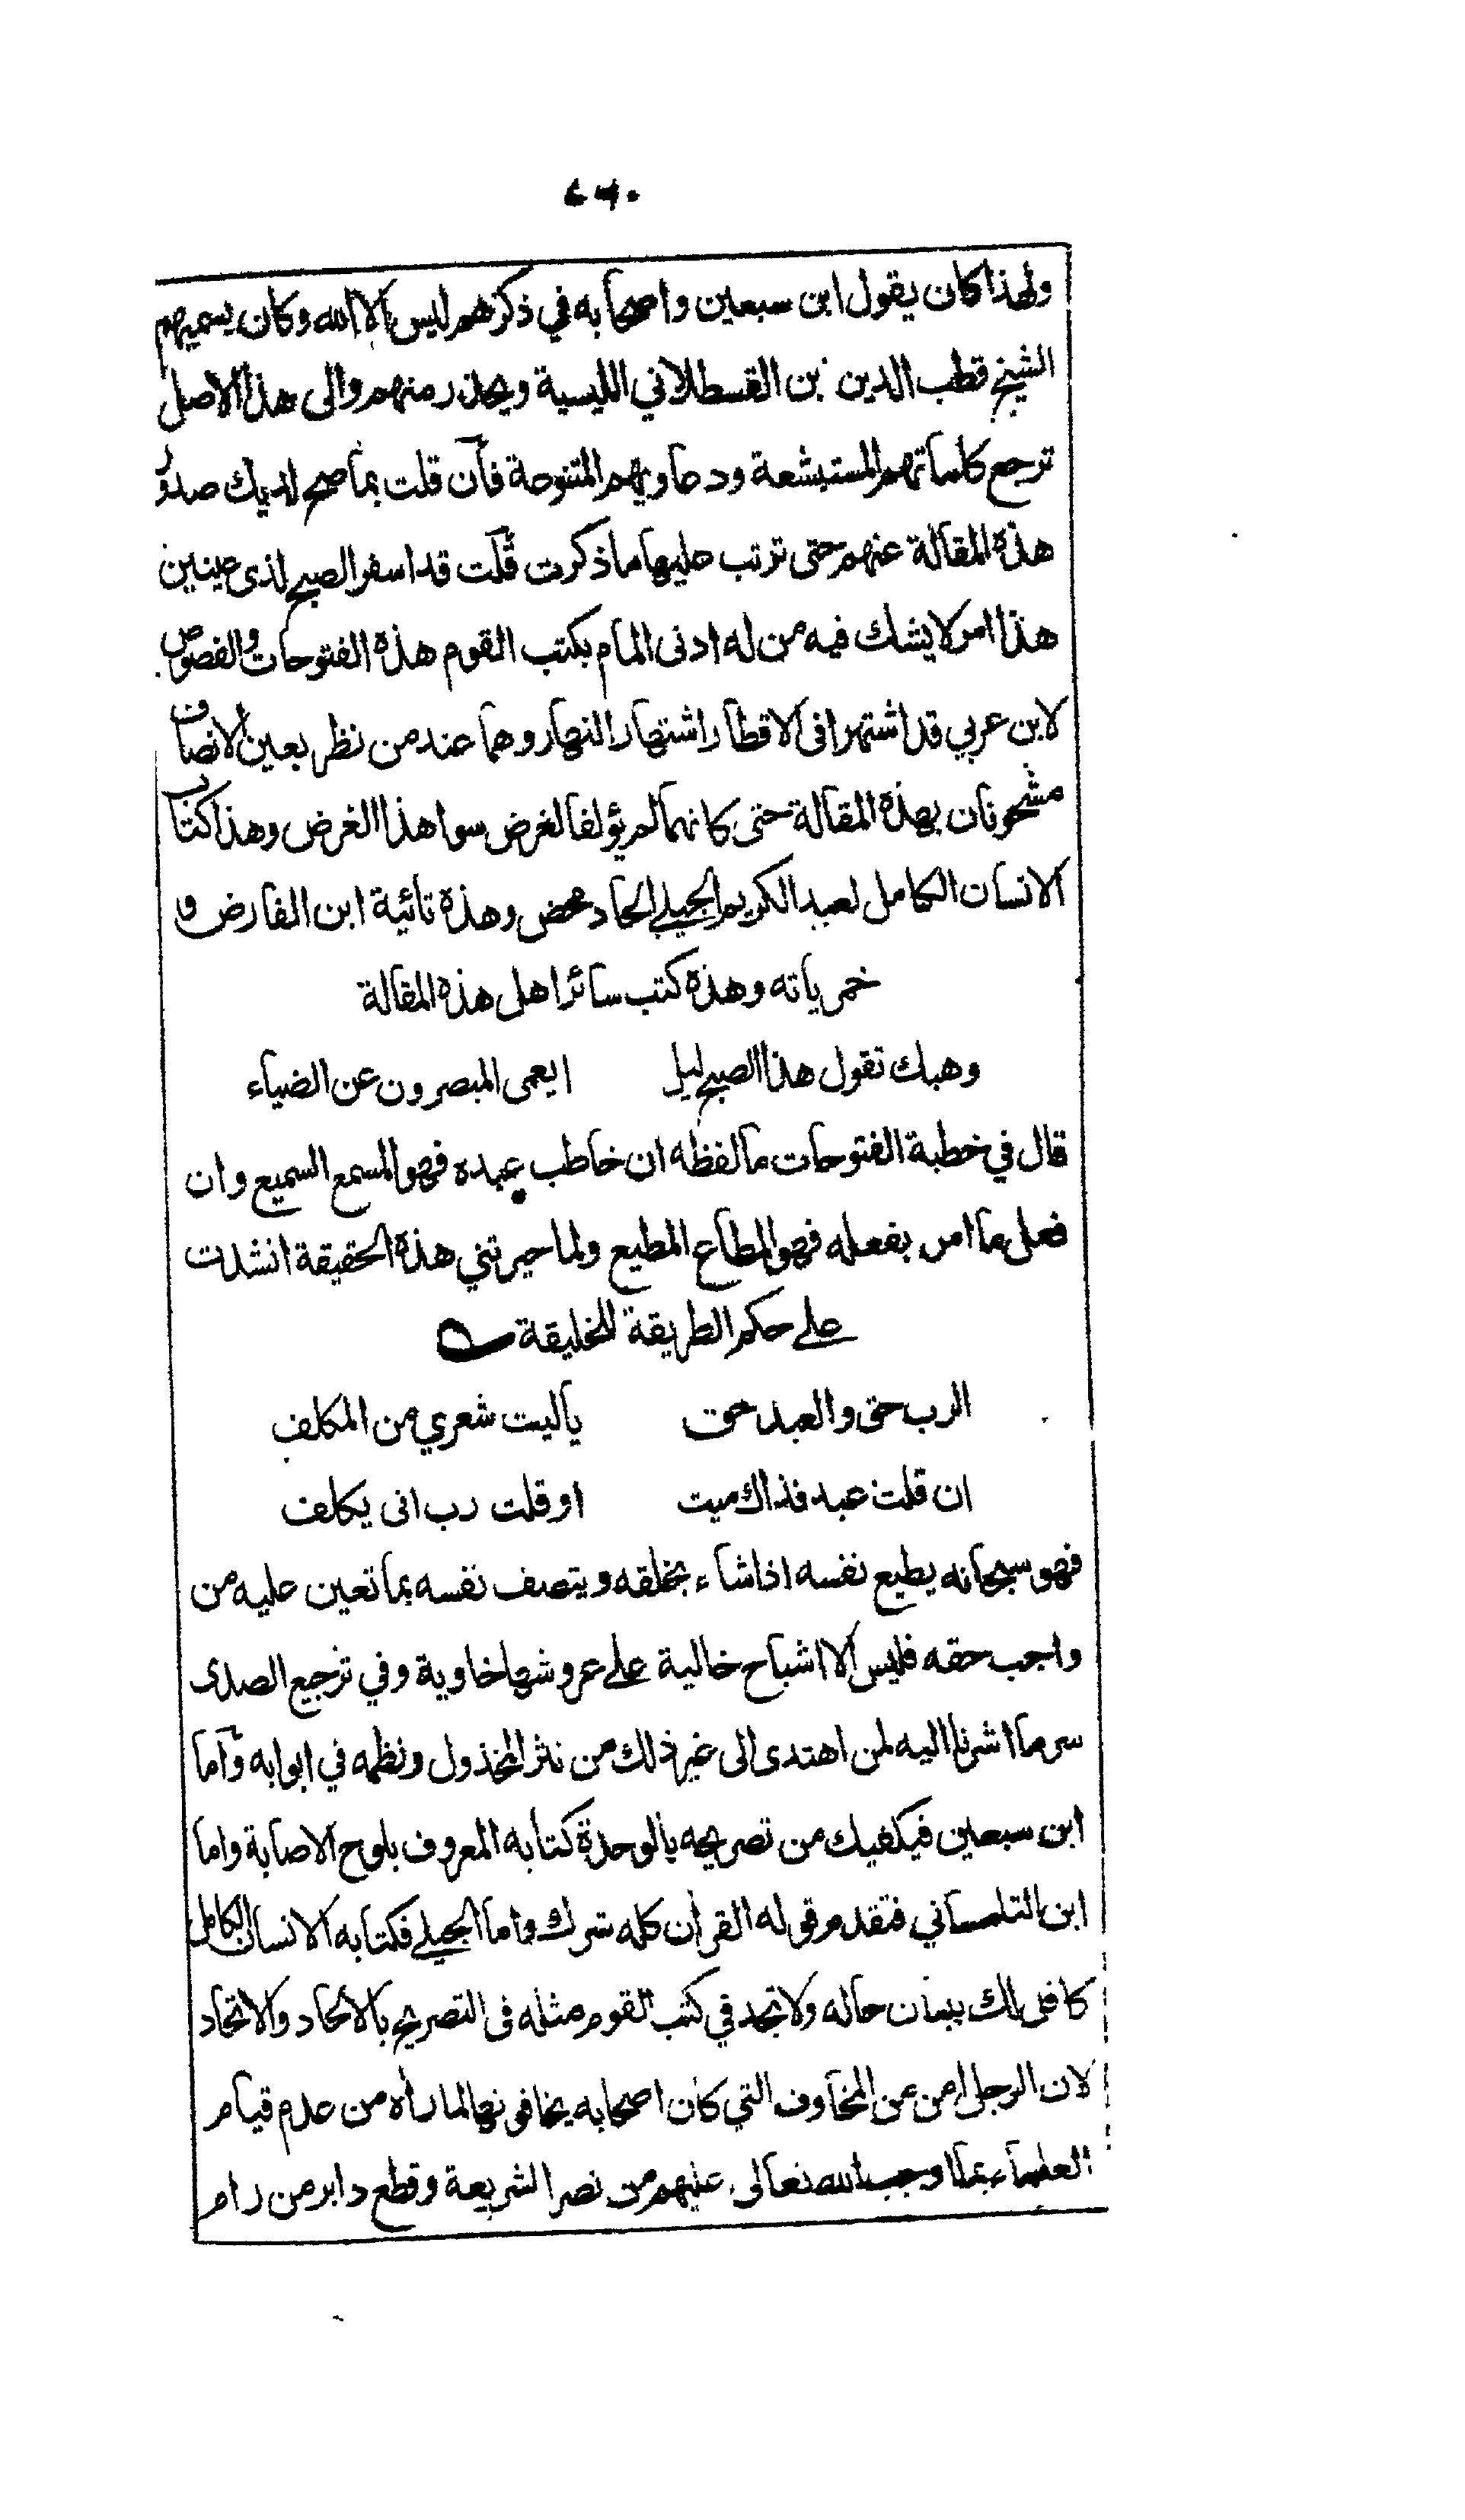 ٢٦٠
ولهذا كان يقول ابن سبعين واصحابه في ذكرهم ليس الا الله وكان يسميهم
الشيخ قطب الدين بن القسطلاني الليسية ويحذر منهم والى هذا الاصل
ترجع كلماتهم المستبشعة ودعاويهم المتنوعة فان قلت بما صح لديك صدور
هذه المقالة عنهم حتى ترتب عليها ما ذكرت قلت قد اسفر الصبح لذى عينين
هذا امر لا يشك فيه من له ادنى المام بكتب القوم هذه الفتوحات والفصوص
لابن عربي قد اشتهرا فى الاقطار اشتهار النهار وهما عند من نظر بعين الانصاف
مشحونان بهذه المقالة حتى كانهما لم يؤلفا لغرض سوا هذا الغرض وهذا كتاب
الانسان الكامل لعبد الكريم الجيلي الحاد محض وهذه تائية ابن الفارض و
خمرياته وهذه كتب سائر اهل هذه المقالة
وهبك تقول هذا الصبح ليل ايعمى المبصرون عن الضياء
قال في خطبة الفتوحات ما لفظه ان خاطب عبده فهو المسمع السميع وان
فعل ما امر بفعله فهو المطاع المطيع ولما حيرتني هذه الحقيقة انشدت
على حكم الطريقة للخليقة
الرب حق والعبد حق ياليت شعري من المكلف
ان قلت عبد فذاك ميت او قلت رب انى يكلف
فهو سبحانه يطيع نفسه اذا شاء بخلقه ويتصف نفسه بما تعين عليه من
واجب حقه فليس الا اشباح خالية على عروشها خاوية وفي ترجيع الصدى
سر ما اشرنا اليه لمن اهتدى الى غير ذلك من نثر المخذول ونظمه في ابوابه واما
ابن سبعين فيكفيك من تصريحه بالوحدة كتابه المعروف بلوح الاصابة واما
ابن التلمساني فتقدم قوله القرأن كله شرك واما الجيلي فكتابه الانسان الكامل
كافل لك ببيان حاله ولا تجد في كتب القوم مثله فى التصريح بالالحاد والاتحاد
لان الرجل امن عن المخاوف التي كان اصحابه يخافونها لما رأه من عدم قيام
العلماء بما اوجب الله تعالى عليهم من نصر الشريعة وقطع دابر من رام